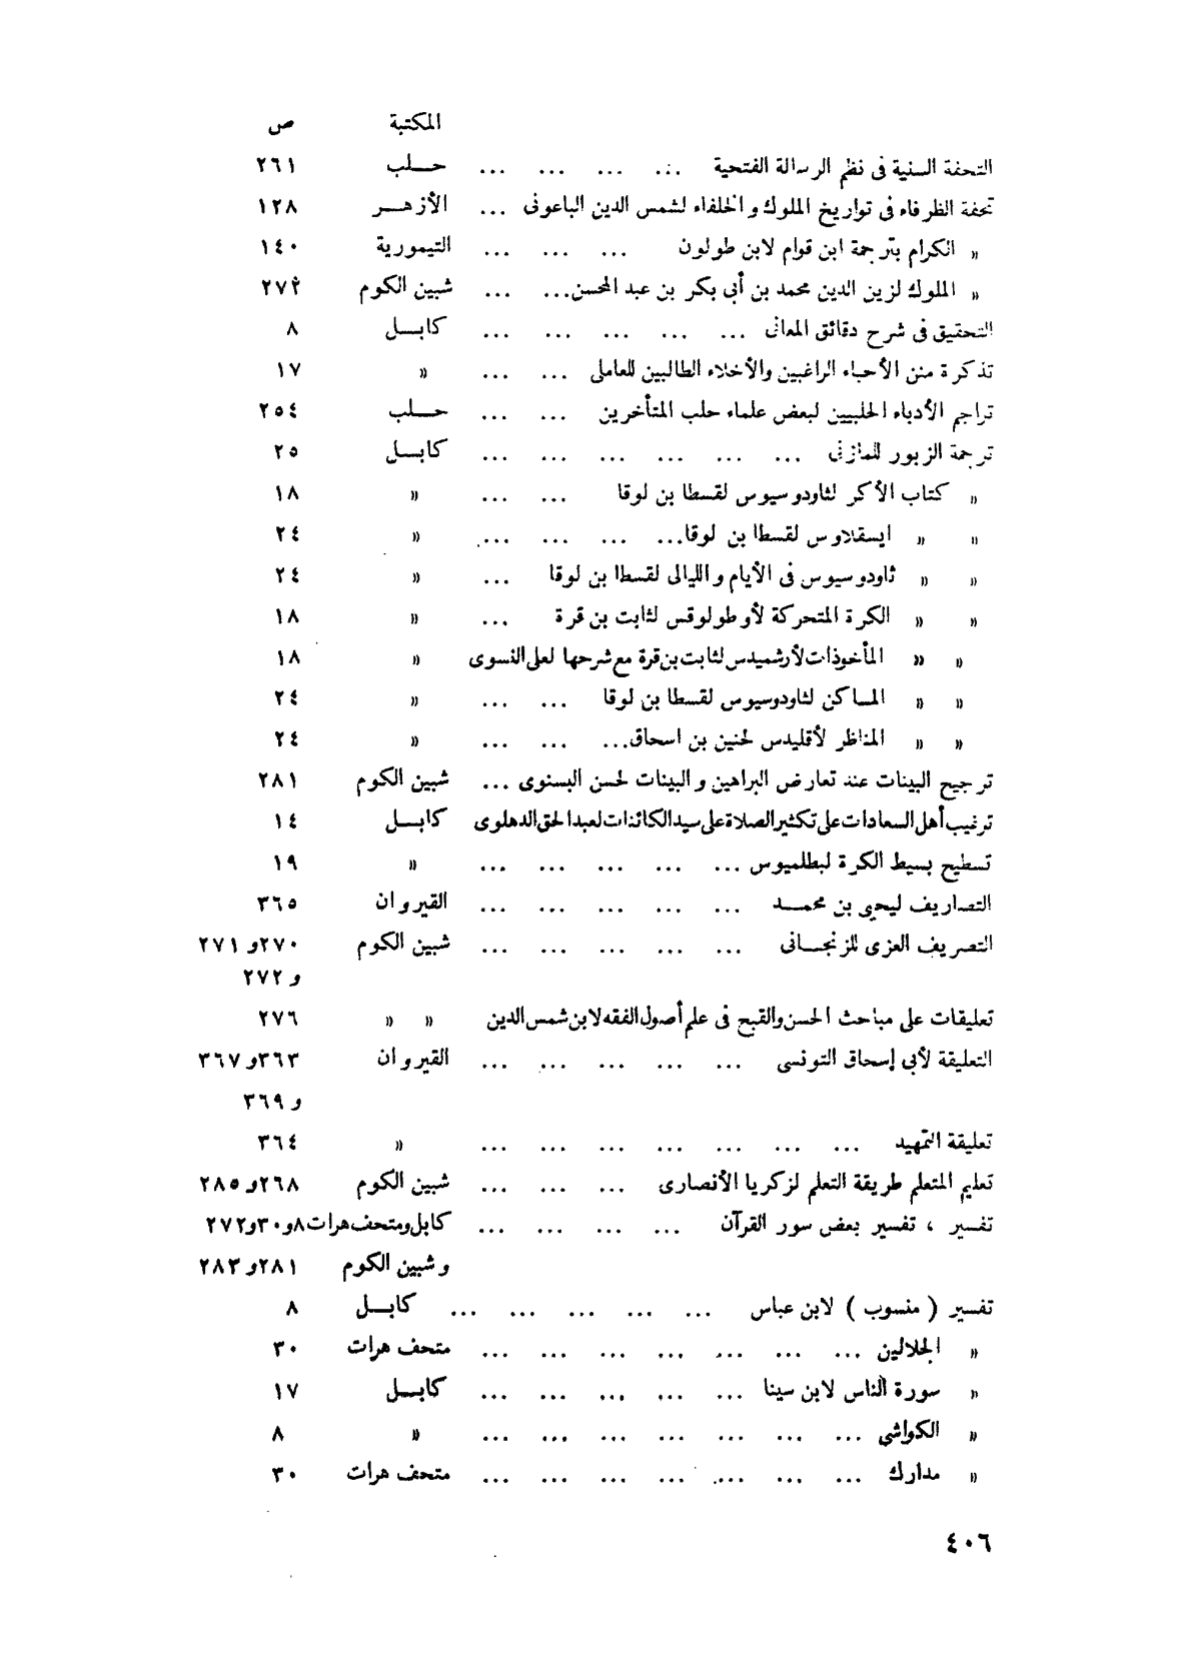 المكتبة ص
التحفة السنية فى نظم الرسالة الفتحية ... ... ... ... حلب ٢٦١
تحفة الظرفاء فى تواريخ الملوك والخلفاء لشمس الدين الباعونى ... الأزهر ١٢٨
« الكرام بترجمة ابن قوام لابن طولون ... ... ... التيمورية ١٤٠
« الملوك لزين الدين محمد بن أبى بكر بن عبد المحسن... ... شبين الكوم ٢٧٢
التحقيق فى شرح دقائق المعانى ... ... ... ... ... كابل ٨
تذكرة منن الأحباء الراغبين والأخلاء الطالبين للعاملى ... ... « ١٧
تراجم الأدباء الحلبيين لبعض علماء حلب المتأخرين ... ... حلب ٢٥٤
ترجمة الزبور للمازنى ... ... ... ... ... ... كابل ٢٥
« كتاب الأكر لثاودوسيوس لقسطا بن لوقا ... ... « ١٨
« « ايسقلاوس لقسطا بن لوقا... ... ... ... « ٢٤
« « ثاودوسيوس فى الأيام والليالى لقسطا بن لوقا ... « ٢٤
« « الكرة المتحركة لأوطولوقس لثابت بن قرة ... « ١٨
« « المأخوذات لأرشميدس لثابت بن قرة مع شرحها لعلى النسوى « ١٨
« « المساكن لثاودوسيوس لقسطا بن لوقا ... ... « ٢٤
« « المناظر لأقليدس لحنين بن اسحاق... ... ... « ٢٤
ترجيح البينات عند تعارض البراهين والبينات لحسن البسنوى ... شبين الكوم ٢٨١
ترغيب أهل السعادات على تكثير الصلاة على سيد الكائنات لعبد الحق الدهلوى كابل ١٤
تسطيح بسيط الكرة لبطلميوس ... ... ... ... ... « ١٩
التصاريف ليحيى بن محمد ... ... ... ... ... القيروان ٣٦٥
التصريف العزى للزنجانى ... ... ... ... ... شبين الكوم ٢٧٠ و ٢٧١
و ٢٧٢
تعليقات على مباحث الحسن والقبح فى علم أصول الفقه لابن شمس الدين « « ٢٧٦
التعليقة لأبى إسحاق التونسى ... ... ... ... ... القيروان ٣٦٣ و ٣٦٧
و ٣٦٩
تعليقة التمهيد ... ... ... ... ... ... ... « ٣٦٤
تعليم المتعلم طريقة التعلم لزكريا الأنصارى ... ... ... شبين الكوم ٢٦٨ و ٢٨٥
تفسير ، تفسير بعض سور القرآن ... ... ... ... كابل ومتحف هرات ٨ و ٣٠ و ٢٧٢
وشبين الكوم ٢٨١ و ٢٨٣
تفسير ( منسوب ) لابن عباس ... ... ... ... ... كابل ٨
« الجلالين ... ... ... ... ... ... ... متحف هرات ٣٠
« سورة الناس لابن سينا ... ... ... ... ... كابل ١٧
« الكواشى ... ... ... ... ... ... ... « ٨
« مدارك ... ... ... ... ... ... ... متحف هرات ٣٠
٤٠٦